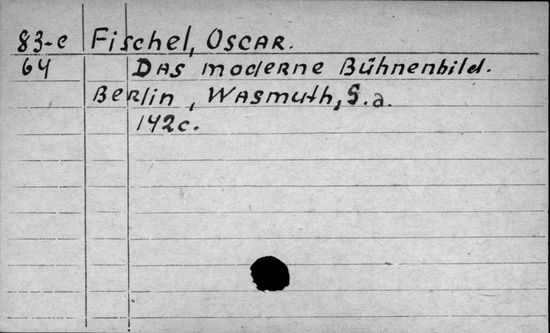 83-e Fischel, Oscar.
64 Das moderne Bühnenbild.
Berlin, Wasmuth, S.a.
142c.